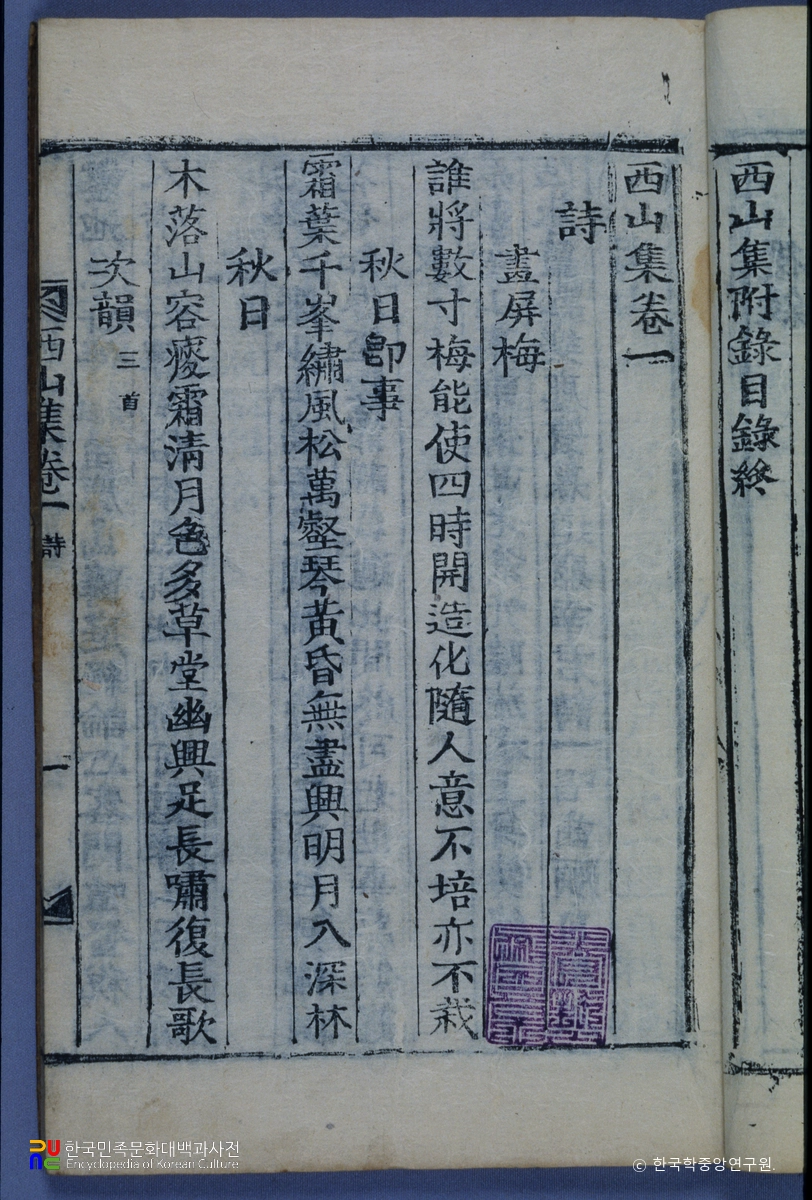 西山集附錄目錄終
西山集卷一
詩
畫屏梅
誰將數寸梅能使四時開造化隨人意不培亦不栽
秋日卽事
霜葉千峯繡風松萬壑琴黃昏無盡興明月入深林
秋日
木落山容瘦霜淸月色多草堂幽興足長嘯復長歌
次韻 三首
西山集卷一 詩 一
한국민족문화대백과사전
Encyclopedia of Korean Culture
© 한국학중앙연구원.